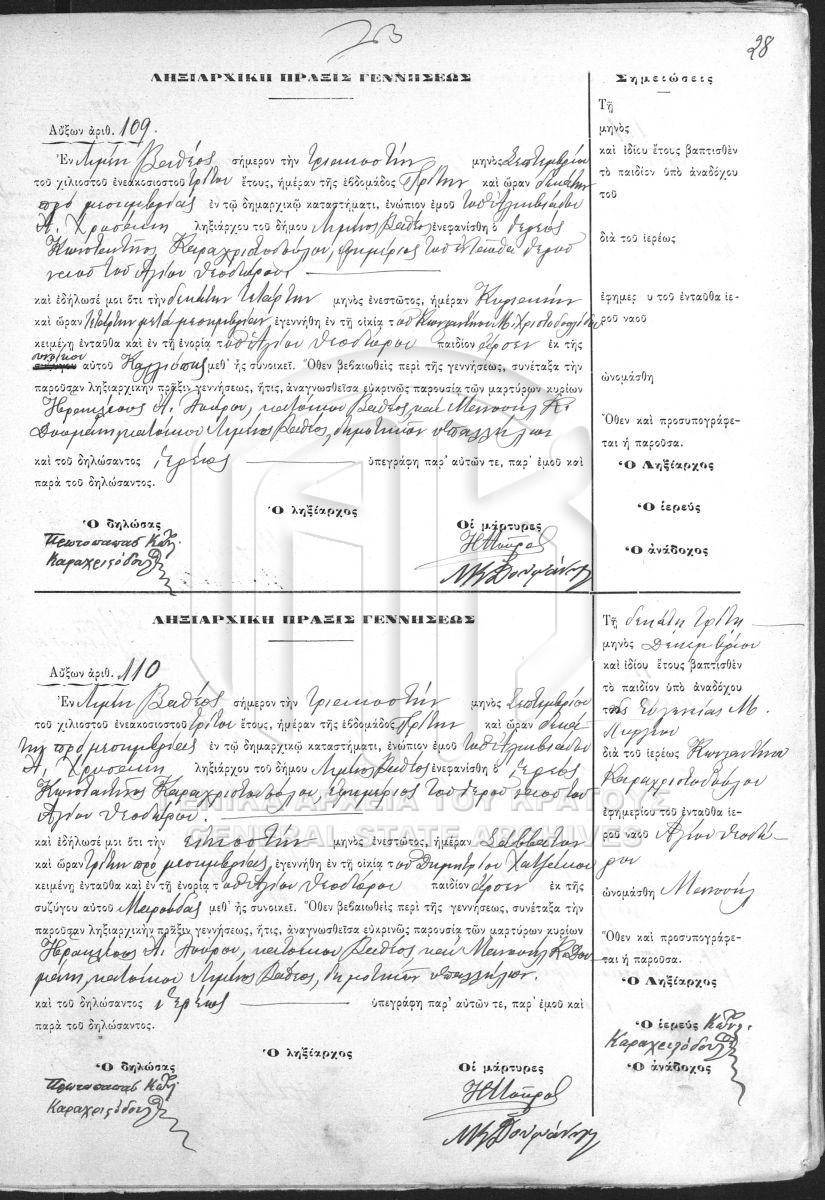 28
ΛΗΞΙΑΡΧΙΚΗ ΠΡΑΞΙΣ ΓΕΝΝΗΣΕΩΣ
Αὔξων ἀριθ. 109.
Ἐν Λιμένι Βαθέος σήμερον τὴν τριακοστήν μηνὸς Σεπτεμβρίου
τοῦ χιλιοστοῦ ἐνεακοσιοστοῦ τρίτου ἔτους, ἡμέραν τῆς ἑβδομάδος Τρίτην καὶ ὥραν δεκάτην
πρό μεσημβρίας ἐν τῷ δημαρχικῷ καταστήματι, ἐνώπιον ἐμοῦ τοῦ Ἀλκιβιάδου
Α. ληξιάρχου τοῦ δήμου Λιμένος Βαθέος ἐνεφανίσθη ὁ ἱερεύς
Κωνσταντῖνος Καραχριστοδούλου, ἐφημέριος τοῦ ἐνταῦθα ἱεροῦ
ναοῦ τοῦ Ἁγίου Θεοδώρου
καὶ ἐδήλωσέ μοι ὅτι τὴν δεκάτην τετάρτην μηνὸς ἐνεστῶτος, ἡμέραν Κυριακήν
καὶ ὥραν τετάρτην μετά μεσημβρίαν, ἐγεννήθη ἐν τῇ οἰκίᾳ τοῦ Κωνσταντίνου Μ. Χριστοδουλίδου
κειμένῃ ἐνταῦθα καὶ ἐν τῇ ἐνορίᾳ τοῦ Ἁγίου Θεοδώρου παιδίον ἄρρεν ἐκ τῆς
συζύγου αὐτοῦ Καλλιόπης μεθ᾽ ἧς συνοικεῖ. Ὅθεν βεβαιωθεὶς περὶ τῆς γεννήσεως, συνέταξα τὴν
παροῦσαν ληξιαρχικὴν πρᾶξιν γεννήσεως, ἥτις, ἀναγνωσθεῖσα εὐκρινῶς παρουσίᾳ τῶν μαρτύρων κυρίων
Ἡρακλέους Α. Μαύρου, κατοίκου Βαθέος καί Μανουήλ Κ.
κατοίκου Λιμένος Βαθέος, δημοτικῶν ὑπαλλήλων
καὶ τοῦ δηλώσαντος ἱερέως ὑπεγράφη παρ᾽ αὐτῶν τε, παρ᾽ ἐμοῦ καὶ
παρὰ τοῦ δηλώσαντος.
Ὁ ληξίαρχος
Ὁ δηλώσας Οἱ μάρτυρες
Πρωτοπαπᾶς Κων.
Καραχριστόδουλου
Η Μαῦρος
Σημειώσεις
Τῇ
μηνὸς
καὶ ἰδίου ἔτους βαπτισθὲν
τὸ παιδίον ὑπὸ ἀναδόχου
τοῦ
διὰ τοῦ ἱερέως
ἐφημερ υ τοῦ ἐνταῦθα ἱε-
ροῦ ναοῦ
ὠνομάσθη
Ὅθεν καὶ προσυπογράφε-
ται ἡ παροῦσα.
Ὁ Ληξίαρχος
Ὁ ἱερεύς
Ὁ ἀνάδοχος
ΛΗΞΙΑΡΧΙΚΗ ΠΡΑΞΙΣ ΓΕΝΝΗΣΕΩΣ
Αὔξων ἀριθ. 110
Ἐν Λιμένι Βαθέος σήμερον τὴν τριακοστήν μηνὸς Σεπτεμβρίου
τοῦ χιλιοστοῦ ἐνεακοσιοστοῦ τρίτου ἔτους, ἡμέραν τῆς ἑβδομάδος Τρίτην καὶ ὥραν δεκά-
την πρό μεσημβρίας ἐν τῷ δημαρχικῷ καταστήματι, ἐνώπιον ἐμοῦ τοῦ Ἀλκιβιάδου
Α. ληξιάρχου τοῦ δήμου Λιμένος Βαθέος ἐνεφανίσθη ὁ ἱερεύς
Κωνσταντῖνος Καραχριστοδούλου, ἐφημέριος τοῦ ἱεροῦ ναοῦ τοῦ
Ἁγίου Θεοδώρου.
καὶ ἐδήλωσέ μοι ὅτι τὴν εἰκοστήν μηνὸς ἐνεστῶτος, ἡμέραν Σάββατον
καὶ ὥραν τρίτην πρό μεσημβρίας, ἐγεννήθη ἐν τῇ οἰκίᾳ τοῦ Δημητρίου
κειμένῃ ἐνταῦθα καὶ ἐν τῇ ἐνορίᾳ τοῦ Ἁγίου Θεοδώρου παιδίον ἄρρεν ἐκ τῆς
συζύγου αὐτοῦ Μαρούδας μεθ᾽ ἧς συνοικεῖ. Ὅθεν βεβαιωθεὶς περὶ τῆς γεννήσεως, συνέταξα τὴν
παροῦσαν ληξιαρχικὴν πρᾶξιν γεννήσεως, ἥτις, ἀναγνωσθεῖσα εὐκρινῶς παρουσίᾳ τῶν μαρτύρων κυρίων
Ἡρακλέους Α. Μαύρου, κατοίκου Βαθέος, καί Μανουήλ Κ.
κατοίκου Λιμένος Βαθέος, δημοτικῶν ὑπαλλήλων.
καὶ τοῦ δηλώσαντος ἱερέως ὑπεγράφη παρ᾽ αὐτῶν τε, παρ᾽ ἐμοῦ καὶ
παρὰ τοῦ δηλώσαντος.
Ὁ ληξίαρχος
Ὁ δηλώσας Οἱ μάρτυρες
Πρωτοπαπᾶς Κων.
Καραχριστόδουλου
Η Μαῦρος
Τῇ δεκάτῃ τρίτῃ
μηνὸς Δεκεμβρίου
καὶ ἰδίου ἔτους βαπτισθὲν
τὸ παιδίον ὑπὸ ἀναδόχου
τῆς Εὐγενίας Μ.
διὰ τοῦ ἱερέως Κωνσταντίνου
Καραχριστοδούλου
ἐφημερίου τοῦ ἐνταῦθα ἱε-
ροῦ ναοῦ Ἁγίου Θεοδώ-
ρου
ὠνομάσθη Μανουήλ
Ὅθεν καὶ προσυπογράφε-
ται ἡ παροῦσα.
Ὁ Ληξίαρχος
Ὁ ἱερεύς Κων.
Καραχριστόδουλου
Ὁ ἀνάδοχος
ΓΕΝΙΚΑ ΑΡΧΕΙΑ ΤΟΥ ΚΡΑΤΟΥΣ
GENERAL STATE ARCHIVES